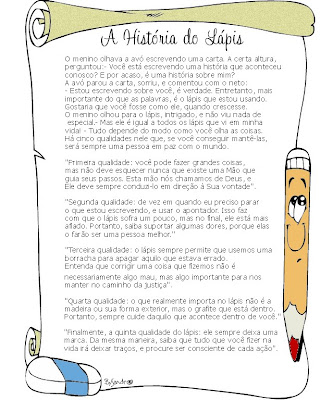 A História do Lápis
O menino olhava a avó escrevendo uma carta. A certa altura,
perguntou:- Você está escrevendo uma história que aconteceu
conosco? E por acaso, é uma história sobre mim?
A avó parou a carta, sorriu, e comentou com o neto:
- Estou escrevendo sobre você, é verdade. Entretanto, mais
importante do que as palavras, é o lápis que estou usando.
Gostaria que você fosse como ele, quando crescesse.
O menino olhou para o lápis, intrigado, e não viu nada de
especial.- Mas ele é igual a todos os lápis que vi em minha
vida! - Tudo depende do modo como você olha as coisas.
Há cinco qualidades nele que, se você conseguir mantê-las,
será sempre uma pessoa em paz com o mundo.
"Primeira qualidade: você pode fazer grandes coisas,
mas não deve esquecer nunca que existe uma Mão que
guia seus passos. Esta mão nós chamamos de Deus, e
Ele deve sempre conduzi-lo em direção à Sua vontade".
"Segunda qualidade: de vez em quando eu preciso parar
o que estou escrevendo, e usar o apontador. Isso faz
com que o lápis sofra um pouco, mas no final, ele está mais
afiado. Portanto, saiba suportar algumas dores, porque elas
o farão ser uma pessoa melhor."
"Terceira qualidade: o lápis sempre permite que usemos uma
borracha para apagar aquilo que estava errado.
Entenda que corrigir uma coisa que fizemos não é
necessariamente algo mau, mas algo importante para nos
manter no caminho da justiça".
"Quarta qualidade: o que realmente importa no lápis não é a
madeira ou sua forma exterior, mas o grafite que está dentro.
Portanto, sempre cuide daquilo que acontece dentro de você."
"Finalmente, a quinta qualidade do lápis: ele sempre deixa uma
marca. Da mesma maneira, saiba que tudo que você fizer na
vida irá deixar traços, e procure ser consciente de cada ação".